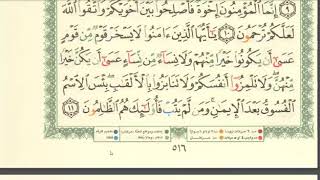 إِنَّمَا ٱلْمُؤْمِنُونَ إِخْوَةٌ فَأَصْلِحُوا۟ بَيْنَ أَخَوَيْكُمْ وَٱتَّقُوا۟ ٱللَّهَ
لَعَلَّكُمْ تُرْحَمُونَ ١٠ يَٰٓأَيُّهَا ٱلَّذِينَ ءَامَنُوا۟ لَا يَسْخَرْ قَوْمٌ مِّن قَوْمٍ
عَسَىٰٓ أَن يَكُونُوا۟ خَيْرًا مِّنْهُمْ وَلَا نِسَآءٌ مِّن نِّسَآءٍ عَسَىٰٓ أَن يَكُنَّ خَيْرًا
مِّنْهُنَّ وَلَا تَلْمِزُوٓا۟ أَنفُسَكُمْ وَلَا تَنَابَزُوا۟ بِٱلْأَلْقَٰبِ بِئْسَ ٱلِٱسْمُ
ٱلْفُسُوقُ بَعْدَ ٱلْإِيمَٰنِ وَمَن لَّمْ يَتُبْ فَأُو۟لَٰٓئِكَ هُمُ ٱلظَّٰلِمُونَ ١١
٥١٦